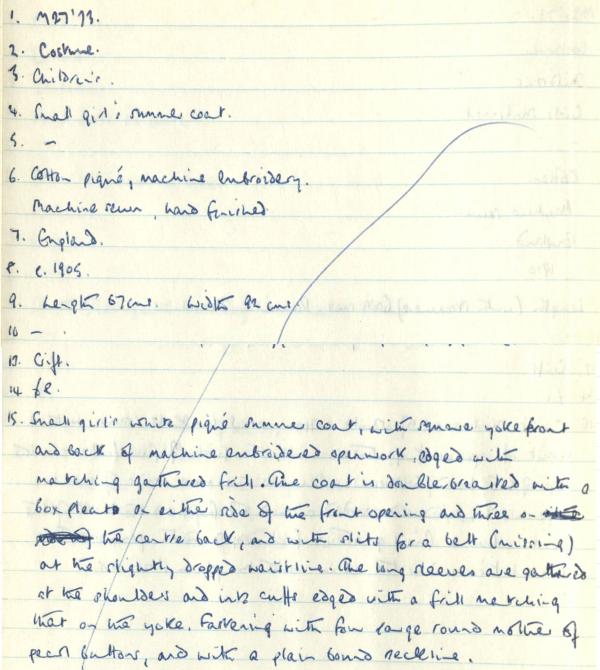 1. M27'73.
2. Costume.
3. Children's.
4. Small girl's summer coat.
5. –
6. Cotton piqué, machine embroidery.
Machine sewn, hand finished
7. England.
8. c. 1905.
9. Length 67cms. Width 92 cms.
10 – .
13. Gift.
14 £2.
15. Small girl's white piqué summer coat, with square yoke front
and back of machine embroidered openwork, edged with
matching gathered frill. The coat is double-breasted with a
box pleat on either side of the front opening and three on
the centre back, and with slits for a belt (missing)
at the slightly dropped waistline. The long sleeves are gathered
at the shoulders and into cuffs edged with a frill matching
that on the yoke. Fastening with four large round mother of
pearl buttons, and with a plain bound neckline.